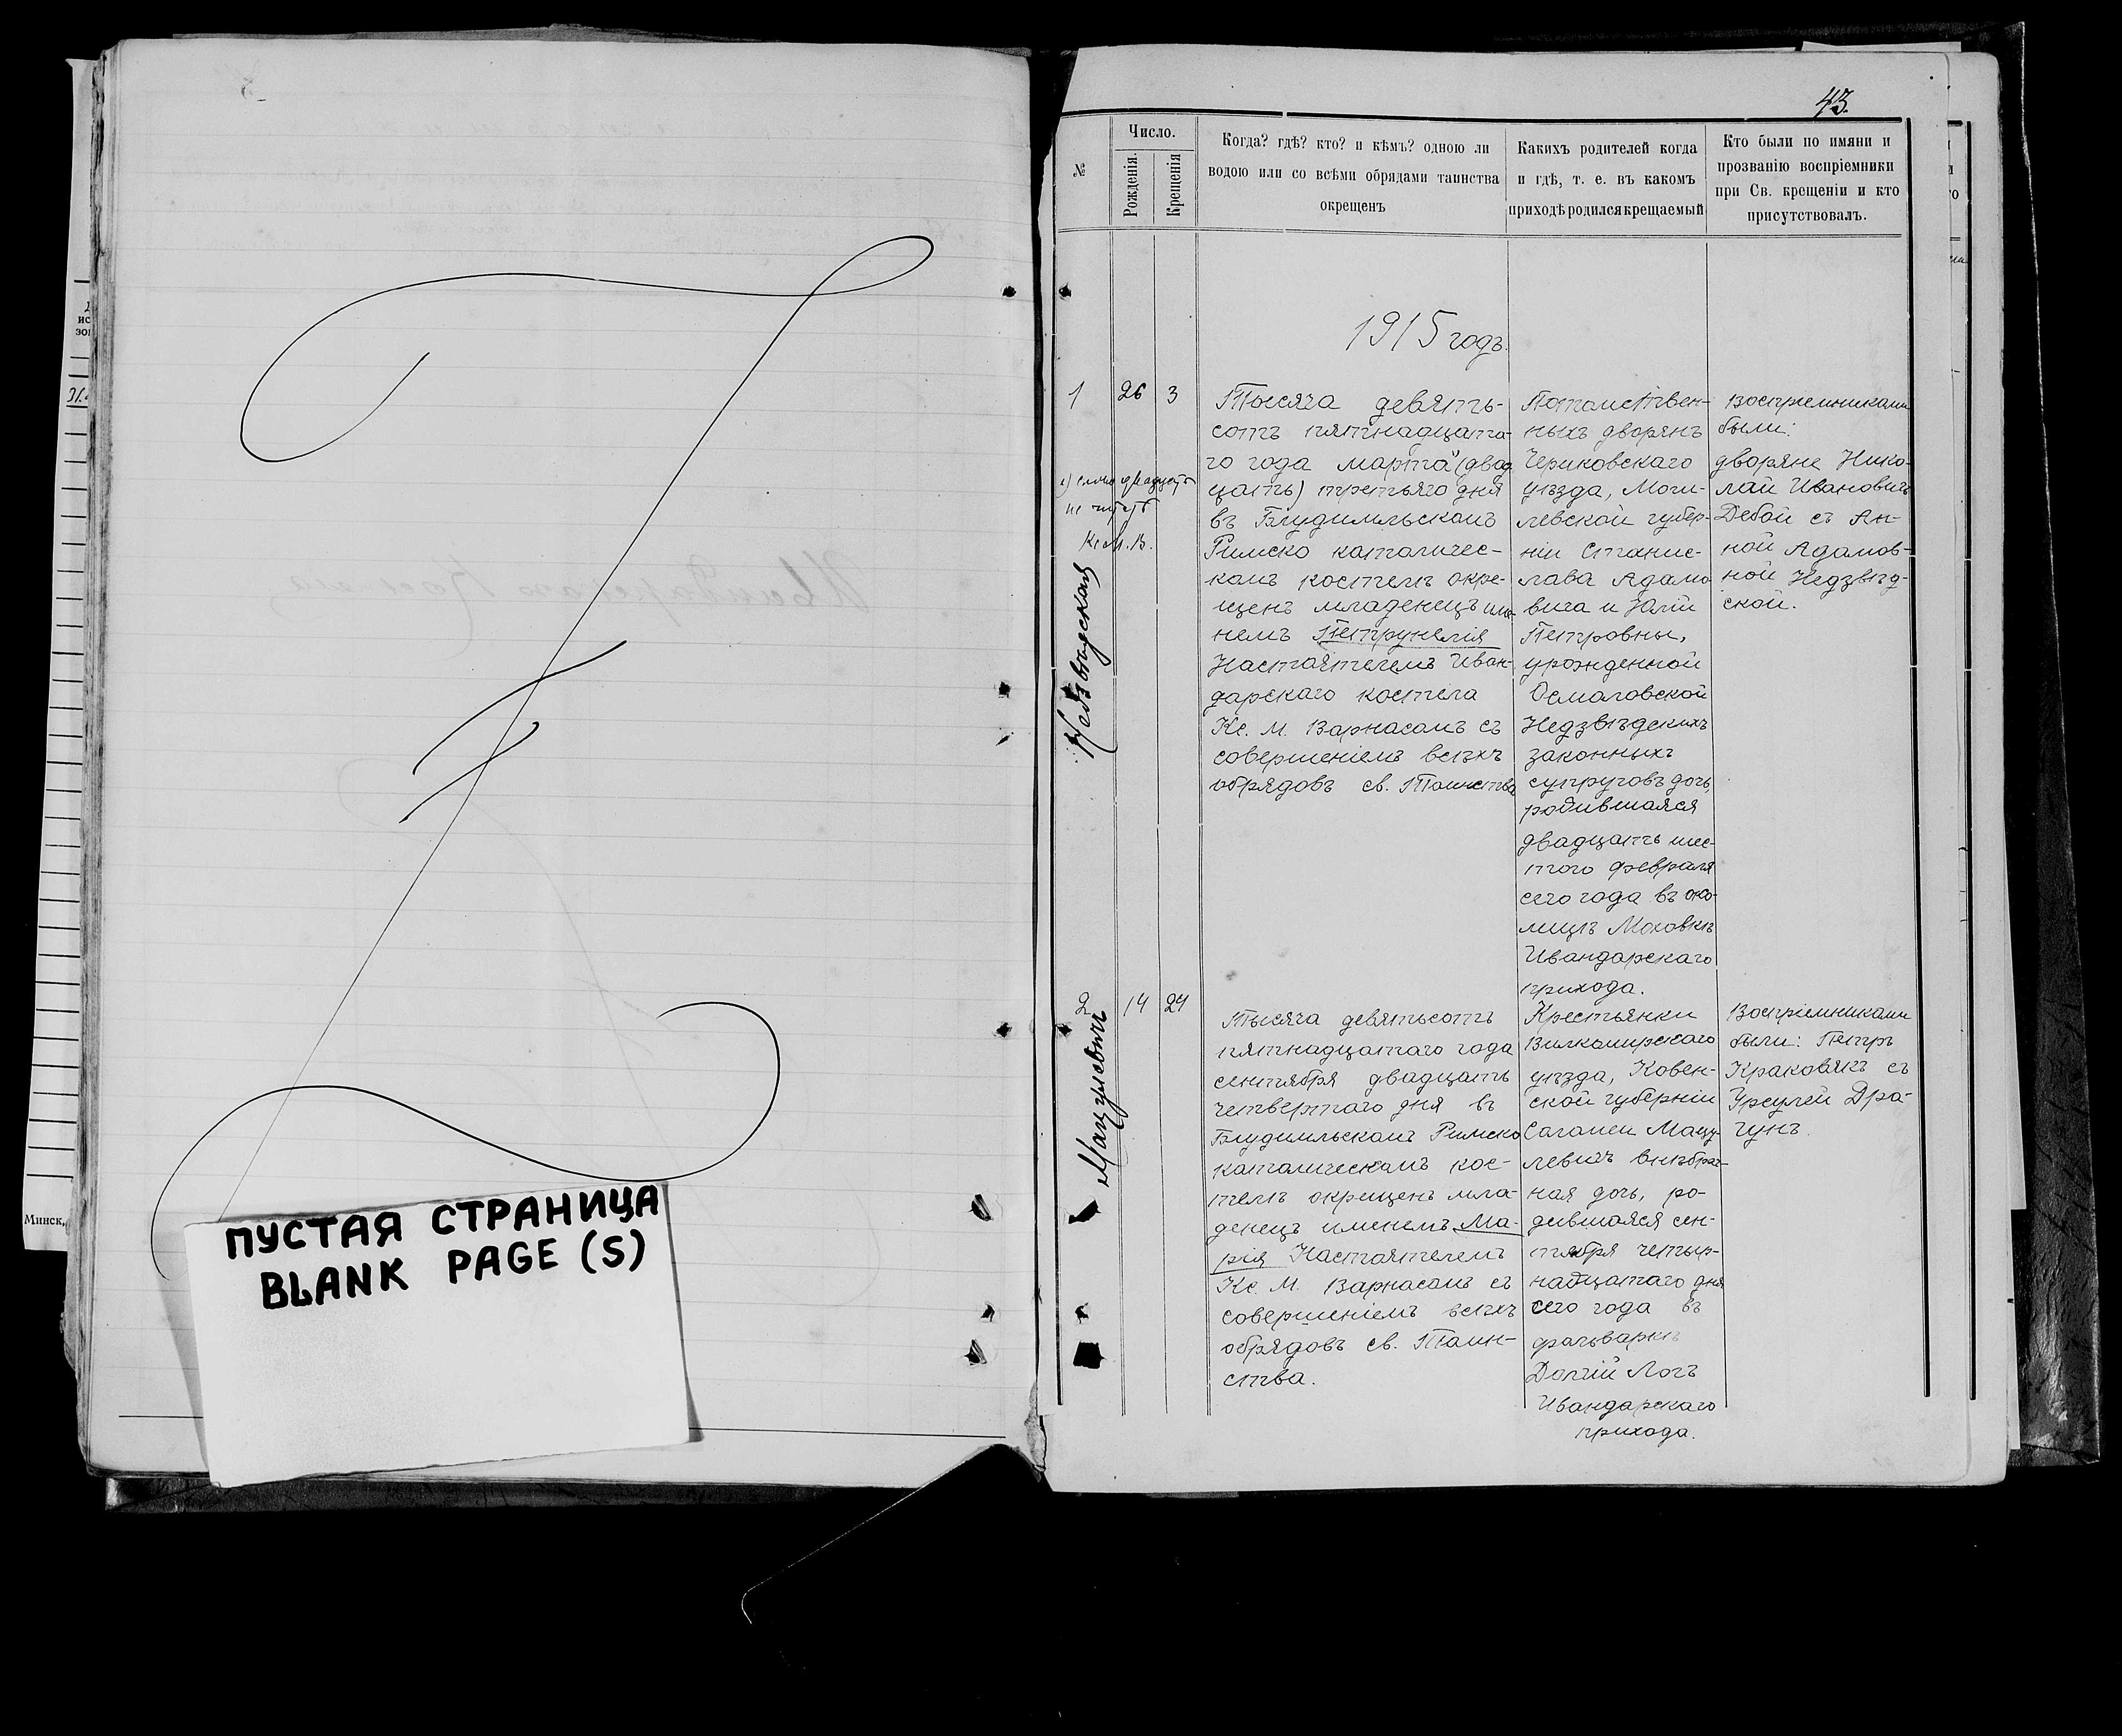 ПУСТАЯ СТРАНИЦА
BLANK PAGE (S)
Минск,
43.
№
Число.
Рожденія.
Крещенія
Когда? гдѣ? кто? и кѣмъ? одною ли
водою или со всѣми обрядами таинства
окрещенъ
Какихъ родителей когда
и гдѣ, т. е. въ какомъ
приходѣ родился крещаемый
Кто были по имяни и
прозванію воспріемники
при Св. крещеніи и кто
присутствовалъ.
1915 годъ.
1
26
3
1) слово двадцать
не читать
Кс. М. В.
Недзвѣдская
Тысяча девять-
сотъ пятнадцата-
го года марта (двад
цать) третьяго дня
въ Блудимльскомъ
Римско католичес-
комъ костелѣ окре-
щенъ младенецъ име-
немъ Петрунелія
Настоятелемъ Иван-
дарскаго костела
Кс. М. Варнасомъ съ
совершеніемъ всѣхъ
обрядовъ св. Таинства
Потомствен-
ныхъ дворянъ
Чериковскаго
уѣзда, Моги-
левской губер-
ніи Станис-
лава Адамо
вича и Юліи
Петровны,
урожденной
Осмоловской
Недзвѣдскихъ
законныхъ
супруговъ дочь,
родившаяся
двадцать шес-
того февраля
сего года въ око-
лицѣ Моховкѣ
Ивандарскаго
прихода.
Воспріемниками
были:
дворяне Нико-
лай Ивановичъ
Дебой съ Ан-
ной Адамов-
ной Недзвѣд-
ской.
2
14
24
Мацулевичъ
Тысяча девятьсотъ
пятнадцатаго года
сентября двадцать
четвертаго дня въ
Блудимльскомъ Римско
католическомъ кос-
телѣ окрещенъ мла-
денецъ именемъ Ма-
рія Настоятелемъ
Кс. М. Варнасомъ съ
совершеніемъ всѣхъ
обрядовъ св. Таин-
ства.
Крестьянки
Вилкомирскаго
уѣзда, Ковен-
ской губерніи
Саломеи Мацу-
левичъ внѣбрач-
ная дочь, ро-
дившаяся сен-
тября четыр-
надцатаго дня
сего года въ
фольваркѣ
Долгій Логъ
Ивандарскаго
прихода.
Воспріемниками
были: Петръ
Краковякъ съ
Урсулей Дра-
гунъ.